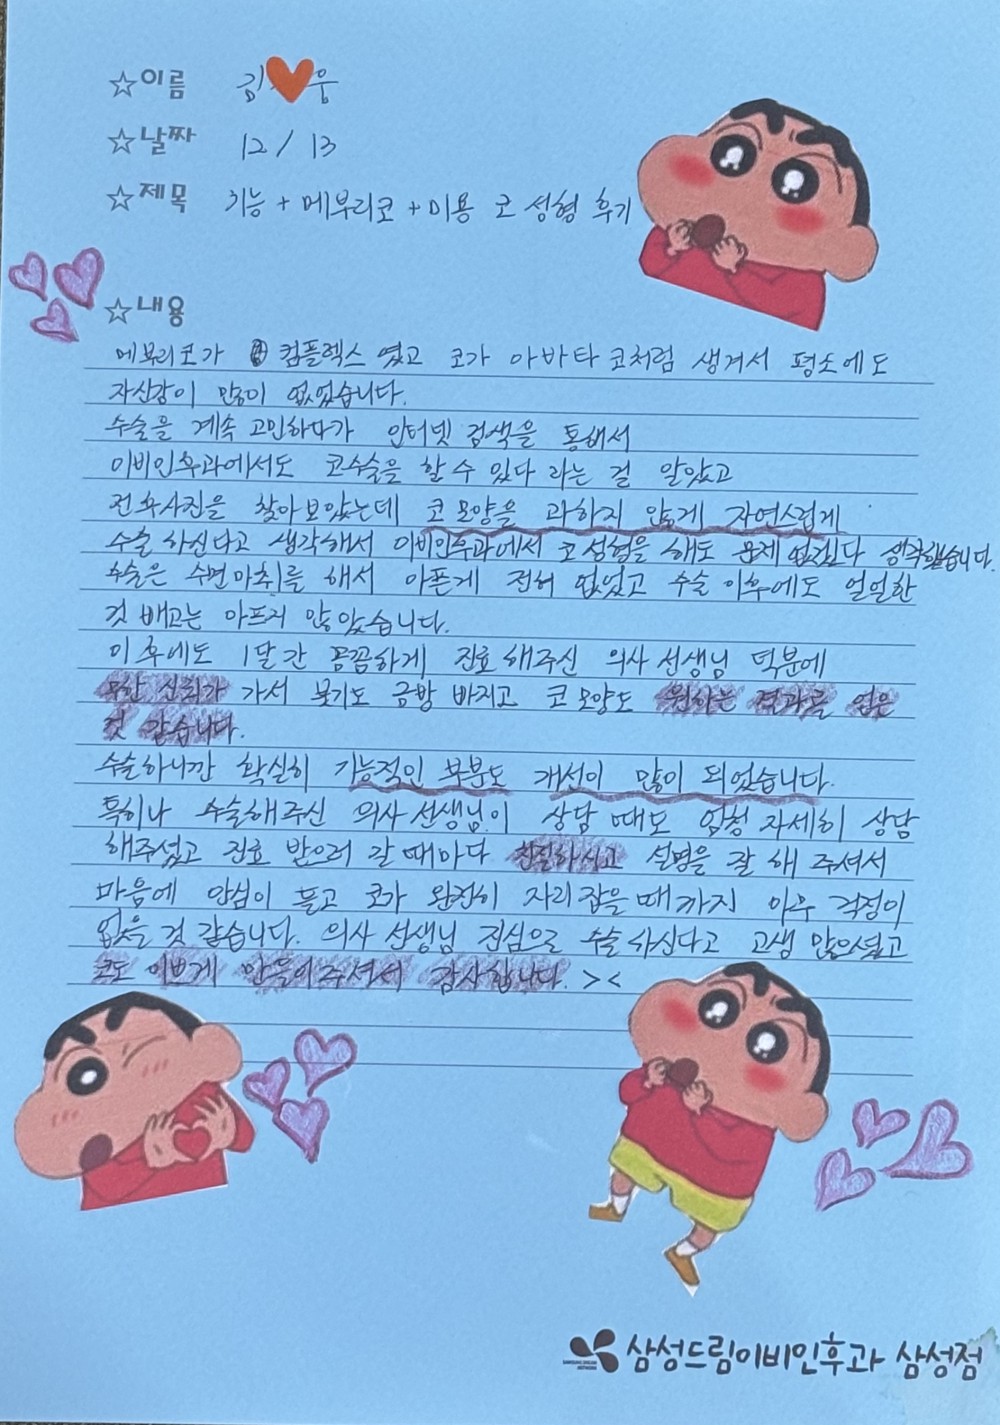 ☆이름 김🧡웅
☆날짜 12 / 13
☆제목 기능 + 메부리코 + 미용 코 성형 후기
☆내용
메부리코가 컴플렉스 였고 코가 아바타 코처럼 생겨서 평소에도
자신감이 많이 없었습니다.
수술을 계속 고민하다가 인터넷 검색을 통해서
이비인후과에서도 코수술을 할 수 있다 라는 걸 알았고
전후사진을 찾아보았는데 코 모양을 과하지 않게 자연스럽게
수술 하신다고 생각해서 이비인후과에서 코 성형을 해도 문제 없겠다 생각했습니다.
수술은 수면마취를 해서 아픈게 전혀 없었고 수술 이후에도 얼얼한
것 빼고는 아프지 않았습니다.
이후에도 1달간 꼼꼼하게 진료 해주신 의사 선생님 덕분에
무한 신뢰가 가서 붓기도 금방 빠지고 코 모양도 원하는 결과를 얻은
것 같습니다.
수술하니깐 확실히 기능적인 부분도 개선이 많이 되었습니다.
특히나 수술해주신 의사 선생님이 상담 때도 엄청 자세히 상담
해주셨고 진료 받으러 갈 때마다 친절하시고 설명을 잘 해 주셔서
마음에 안심이 들고 코가 완전히 자리 잡을 때 까지 아무 걱정이
없을 것 같습니다. 의사 선생님 진심으로 수술 하신다고 고생 많으셨고
코도 이쁘게 만들어주셔서 감사합니다. ><
삼성드림이비인후과 삼성점